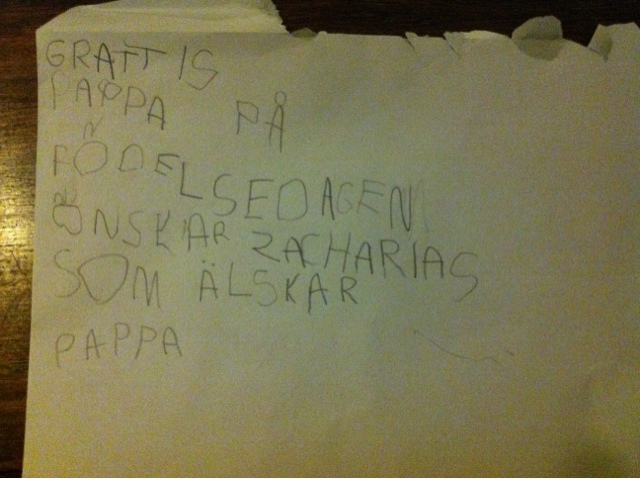 GRATTIS
PAPPA PÅ
FÖDELSEDAGEN
ÖNSKAR ZACHARIAS
SOM ÄLSKAR
PAPPA